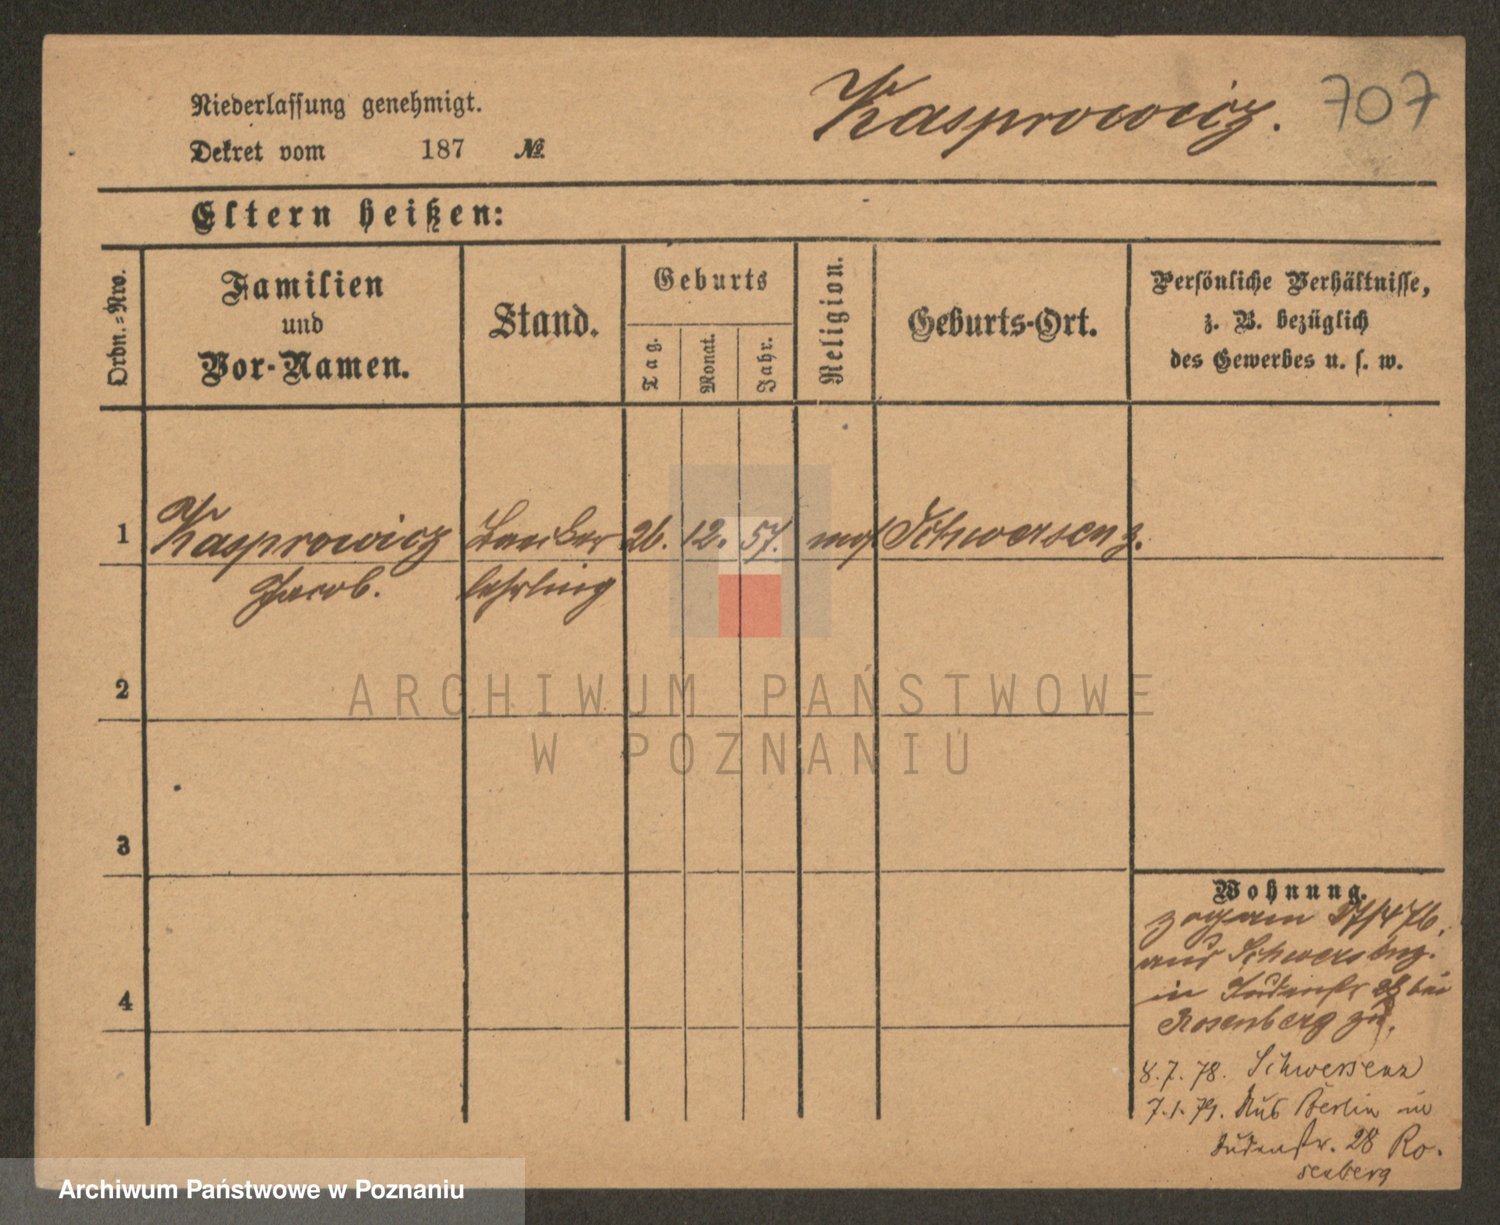 Niederlassung genehmigt.
Kasprowicz. 707
Dekret vom 187 №
Eltern heißen:
Ordn.-Nro.
Familien
und
Vor-Namen.
Stand.
Geburts
Tag.
Monat.
Jahr.
Religion.
Geburts-Ort.
Persönliche Verhältnisse,
z. B. bezüglich
des Gewerbes u. s. w.
1 Kasprowicz 26. 12. 57. Schwersenz.
Jacob. lehrling
2
ARCHIWUM PAŃSTWOWE
W POZNANIU
3
4
Wohnung.
zog am 76.
aus Schwersenz.
in Judenstr 28 bei
Rosenberg zu.
8.7.78. Schwersenz
7.1.79. Aus Berlin in
Judenstr. 28 Ro-
senberg
Archiwum Państwowe w Poznaniu